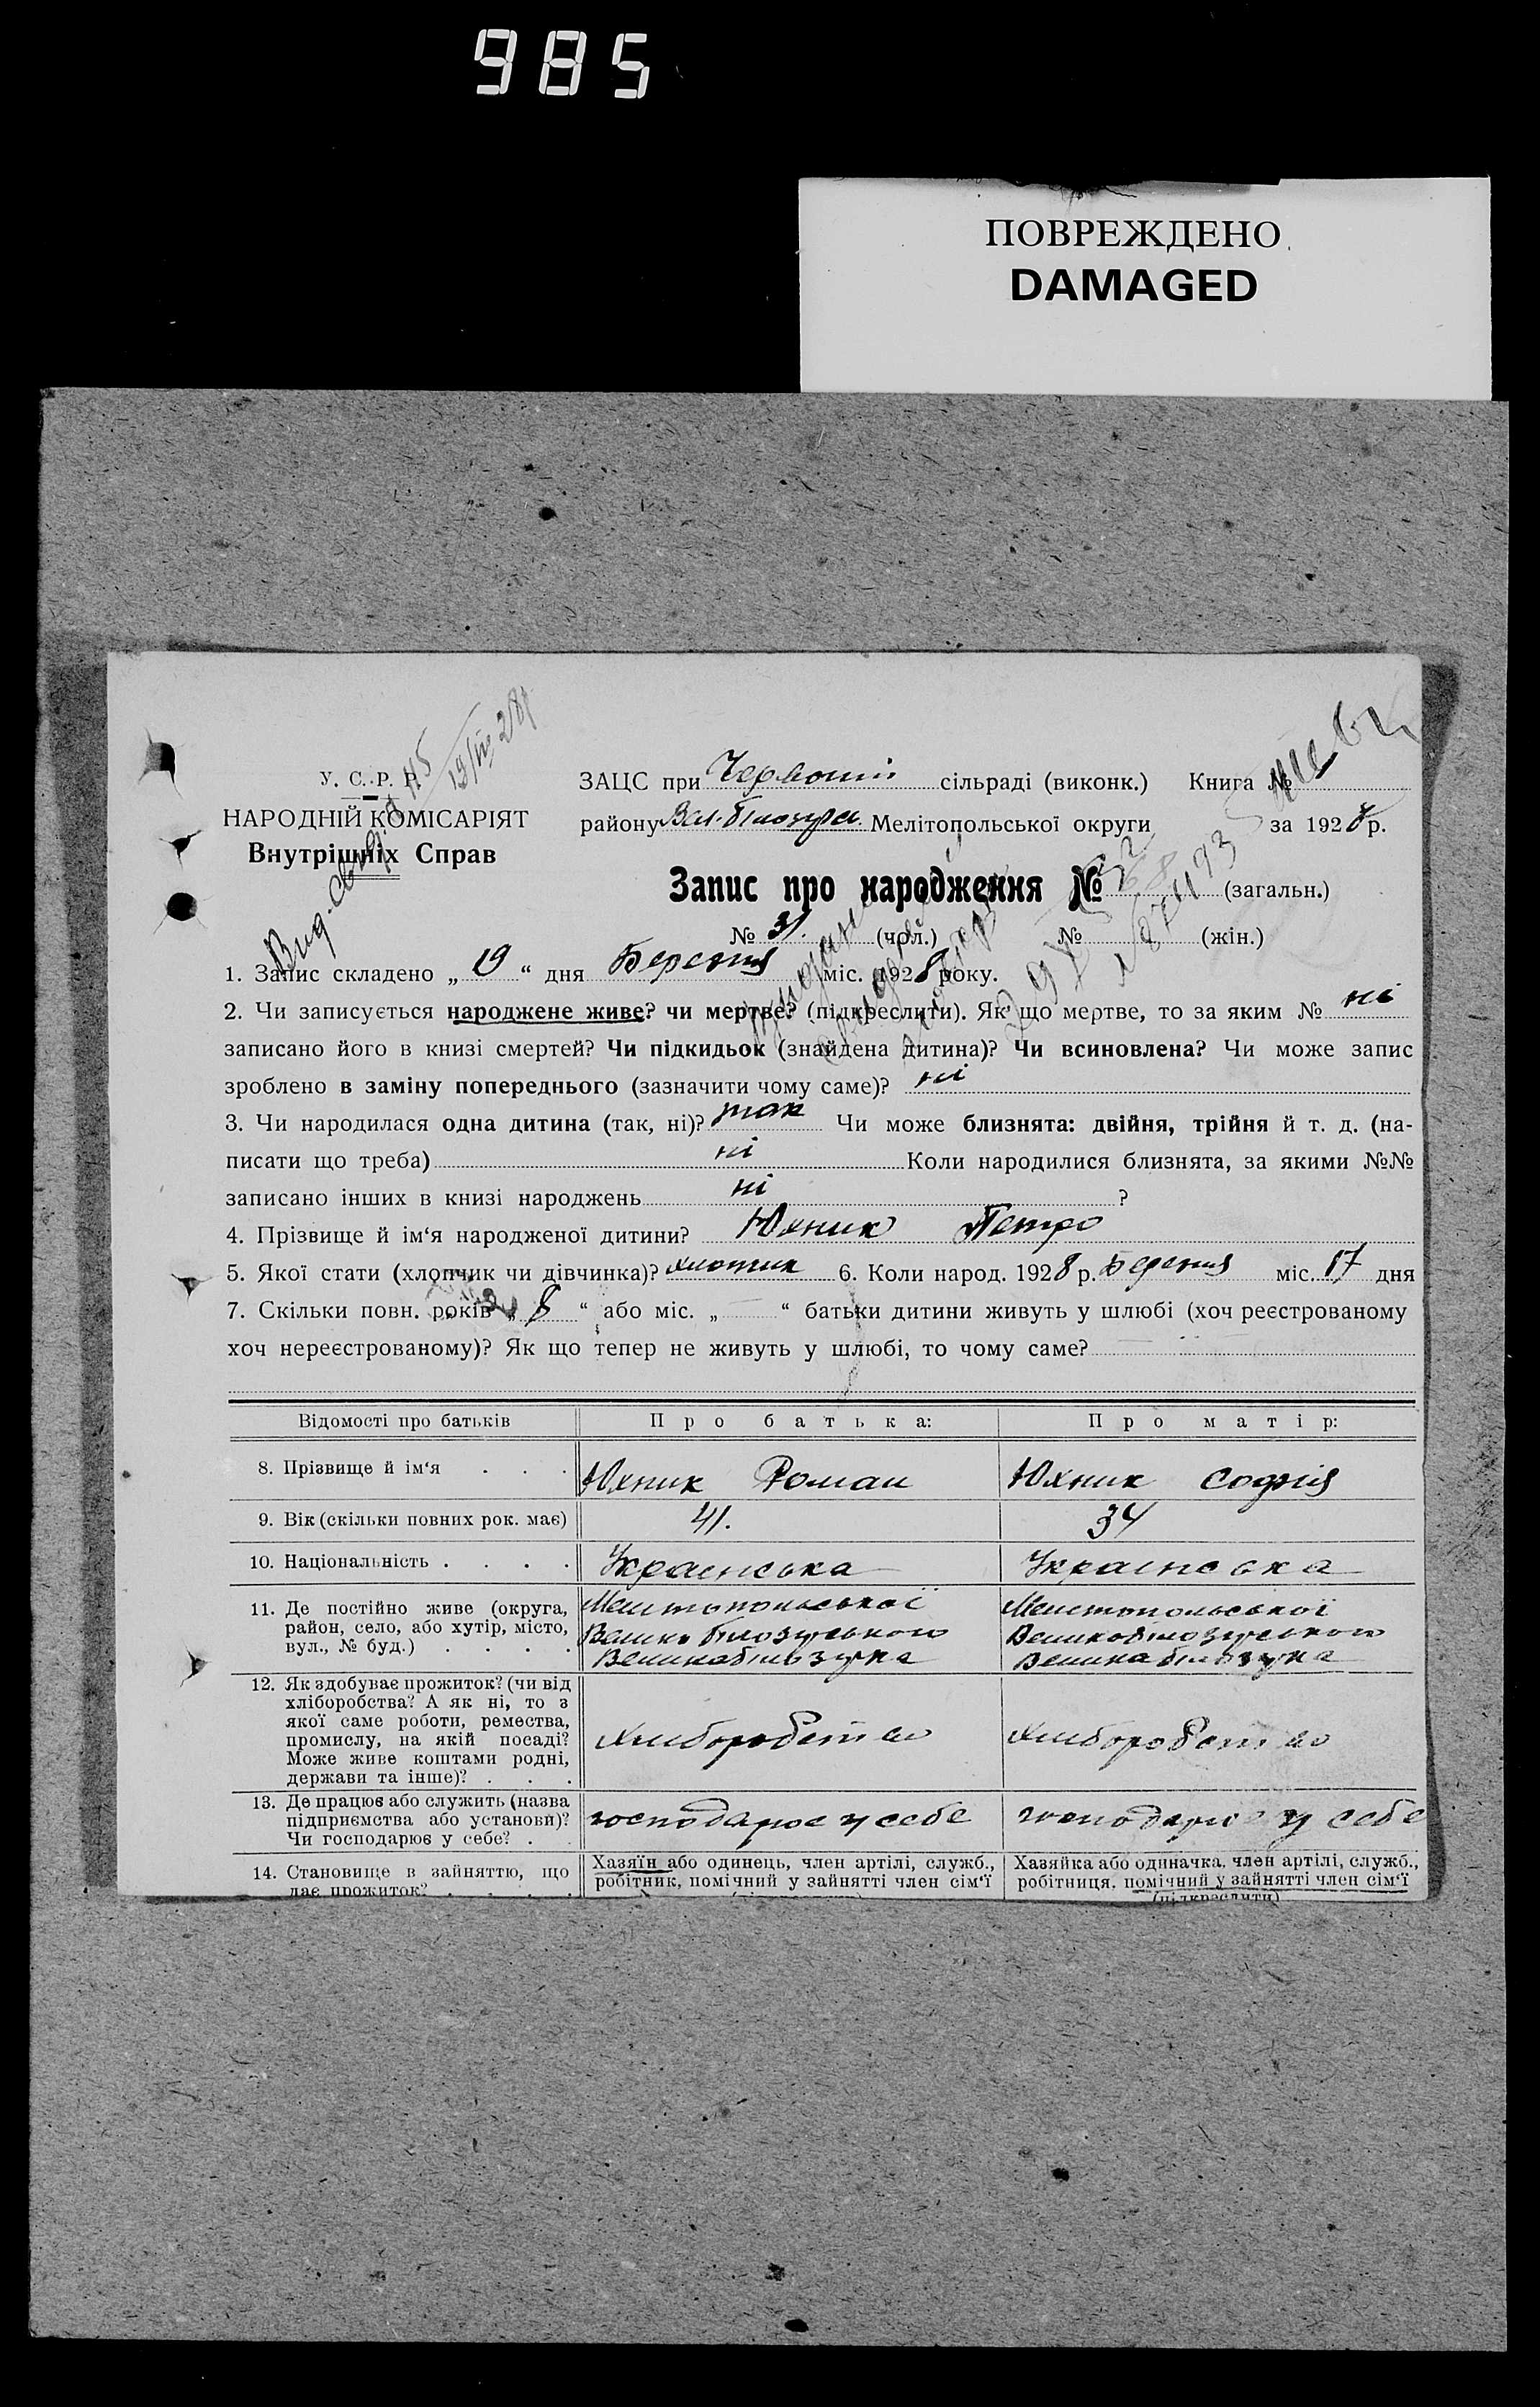 985
ПОВРЕЖДЕНО
DAMAGED
У. С. Р. Р.
НАРОДНІЙ КОМІСАРІЯТ
Внутрішніх Справ
ЗАЦС при сільраді (виконк.) Книга №
району Вел.-Білозірк. Мелітопольської округи за 1928 р.
Запис про народження № 68 (загальн.)
№ 31. (чол.) № (жін.)
1. Запис складено „ 19 “ дня Березня міс. 1928 року.
2. Чи записується народжене живе? чи мертве? (підкреслити). Як що мертве, то за яким № ні
записано його в книзі смертей? Чи підкидьок (знайдена дитина)? Чи всиновлена? Чи може запис
зроблено в заміну попереднього (зазначити чому саме)? ні
3. Чи народилася одна дитина (так, ні)? так Чи може близнята: двійня, трійня й т. д. (на-
писати що треба) ні Коли народилися близнята, за якими №№
записано інших в книзі народжень ні ?
4. Прізвище й ім‘я народженої дитини? Юхник Петро
5. Якої стати (хлопчик чи дівчинка)? хлопчик 6. Коли народ. 1928 р. Березня міс. 17 дня
7. Скільки повн. років „ 8 “ або міс. „ — “ батьки дитини живуть у шлюбі (хоч реєстрованому
хоч нереєстрованому)? Як що тепер не живуть у шлюбі, то чому саме? —
Відомості про батьків Про батька: Про матір:
8. Прізвище й ім‘я . . . Юхник Роман Юхник Софія
9. Вік (скільки повних рок. має) 41. 34
10. Національність . . . . Українська Українська
11. Де постійно живе (округа,
район, село, або хутір, місто,
вул., № буд.) . . . .
Мелитопольської
Велико білозуського
Великабілозурка
Мелитопольської
Великобілозурського
Великабілозурка
12. Як здобуває прожиток? (чи від
хліборобства? А як ні, то з
якої саме роботи, ремества,
промислу, на якій посаді?
Може живе коштами родні,
держави та інше)? . . .
Хлиборобство
Хлиборобство
13. Де працює або служить (назва
підприємства або установи)?
Чи господарює у себе? . .
господарює у себе
господарює у себе
14. Становище в зайняттю, що
дає прожиток? . . . .
Хазяїн або одинець, член артілі, служб.,
робітник, помічний у зайнятті член сім‘ї
Хазяйка або одиначка, член артілі, служб.,
робітниця, помічний у зайнятті член сім‘ї
(підкреслити)